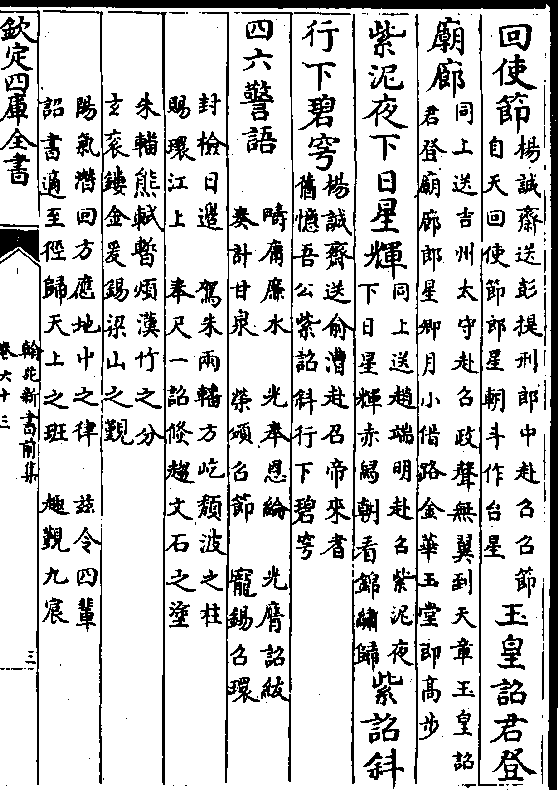 回使節
楊誠齋送彭提刑郎中赴召召節
自天回使節郎星朝斗作台星
玉皇詔君登
廟廊
同上送吉州太守赴召政聲無翼到天章玉皇詔
君登廟廊郎星卿月小借路金華玉堂即髙步
紫泥夜下日星輝
同上送趙端明赴召紫泥夜
下日星輝赤舄朝看錦繡歸
紫詔斜
行下碧穹
楊誠齋送俞漕赴召帝來耆
舊憶吾公紫詔斜行下碧穹
四六警語
疇庸廉水 光奉恩綸 光膺詔紱
奏計甘泉 榮頒召節 寵錫召環
封檢日邊 駕朱兩轓方屹頽波之柱
賜環江上 奉尺一詔倐趨文石之塗
朱轓熊軾暫煩漢竹之分
玄衮鏤金爰錫梁山之覲
陽氣潛回方應地中之律 兹令四輩
詔書適至徑歸天上之班 趣覲九宸
欽定四庫全書
翰苑新書前集
卷六十三
三